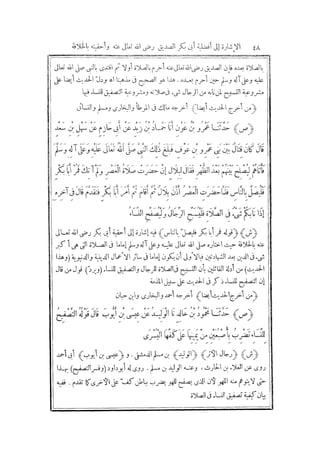 ٤٨ الإشارة إلى أفضلية أبي بكر الصديق رضى الله تعالى عنه وأحقيته بالخلافة
بالصلاة بعده فإن الصديق رضى الله تعالى عنه أحرم بالصلاة أولا ثم اقتدى بالنبى صلى الله تعالى
عليه وعلى آله وسلم حين أحرم بعده. هذا هو الصحيح فى مذهبنا اه ودل الحديث أيضا على
مشروعية التسبيح لمن نابه من الرجال شىء فى صلاته ومشروعية التصفيق للنساء فيها
﴿من أخرج الحديث أيضا﴾ أخرجه مالك فى الموطأ والبخارى ومسلم والنسائى
﴿ص﴾ حَدَّثَنَا عَمْرُو بْنُ عَوْنٍ أَنَا حَمَّادُ بْنُ زَيْدٍ عَنْ أَبِى حَازِمٍ عَنْ سَهْلِ بْنِ سَعْدٍ
قَالَ كَانَ قِتَالٌ بَيْنَ بَنِى عَمْرِو بْنِ عَوْفٍ فَبَلَغَ ذَلِكَ النَّبِىَّ صَلَّى اللهُ تَعَالَى عَلَيْهِ وَعَلَى آلِهِ وَسَلَّمَ
فَأَتَاهُمْ لِيُصْلِحَ بَيْنَهُمْ بَعْدَ الظُّهْرِ فَقَالَ لِبِلَالٍ إِنْ حَضَرَتْ صَلَاةُ الْعَصْرِ وَلَمْ آتِكَ فَمُرْ أَبَا بَكْرٍ
فَلْيُصَلِّ بِالنَّاسِ فَلَمَّا حَضَرَتِ الْعَصْرُ أَذَّنَ بِلَالٌ ثُمَّ أَقَامَ ثُمَّ أَمَرَ أَبَا بَكْرٍ فَتَقَدَّمَ قَالَ فِى آخِرِهِ
إِذَا نَابَكُمْ شَىْءٌ فِى الصَّلَاةِ فَلْيُسَبِّحِ الرِّجَالُ وَلْيُصَفِّحِ النِّسَاءُ
﴿ش﴾ ﴿قوله فمر أبا بكر فليصل بالناس﴾ فيه إشارة إلى أحقية أبى بكر رضى الله تعالى
عنه بالخلافة حيث اختاره صلى الله تعالى عليه وعلى آله وسلم إماما فى الصلاة التى هى أكبر
شىء فى الدين بعد الشهادتين فبالأولى أن يكون إماما فى سائر الأعمال الدينية والدنيوية ﴿وهذا
الحديث﴾ من أدلة القائلين بأن التسبيح فى الصلاة للرجال والتصفيق للنساء ﴿ويرد﴾ قول من قال
إن التصفيح للنساء ذكر فى الحديث على سبيل المذمة
﴿من أخرج الحديث أيضا﴾ أخرجه أحمد والبخارى وابن حبان
﴿ص﴾ حَدَّثَنَا مَحْمُودُ بْنُ خَالِدٍ نَا الْوَلِيدُ عَنْ عِيسَى بْنِ أَيُّوبَ قَالَ قَوْلُهُ التَّصْفِيحُ
لِلنِّسَاءِ تَضْرِبُ بِأُصْبُعَيْنِ مِنْ يَمِينِهَا عَلَى كَفِّهَا الْيُسْرَى
﴿ش﴾ ﴿رجال الأثر﴾ ﴿الوليد﴾ بن مسلم الدمشقى. و﴿عيسى بن أيوب﴾ أبى أحمد
روى عن العلاء بن الحارث. وعنه الوليد بن مسلم. روى له أبو داود ﴿وفسر التصفيح﴾ بهذا
حتى لا يتوهم منه اللهو لأن الذى يصفح للهو يضرب بباطن كف على الأخرى كما تقدم. ففيه
بيان كيفية تصفيق النساء فى الصلاة